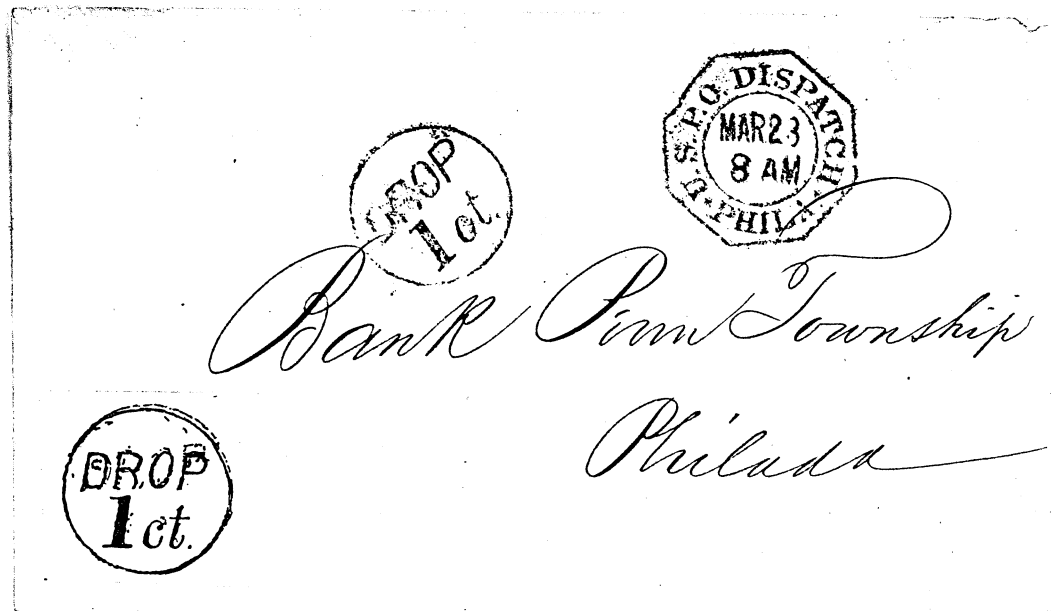 U.S.P.O. DISPATCH PHIL
MAR 23
8 AM
DROP
1 ct.
Bank Penn Township
Philada
DROP
1 ct.